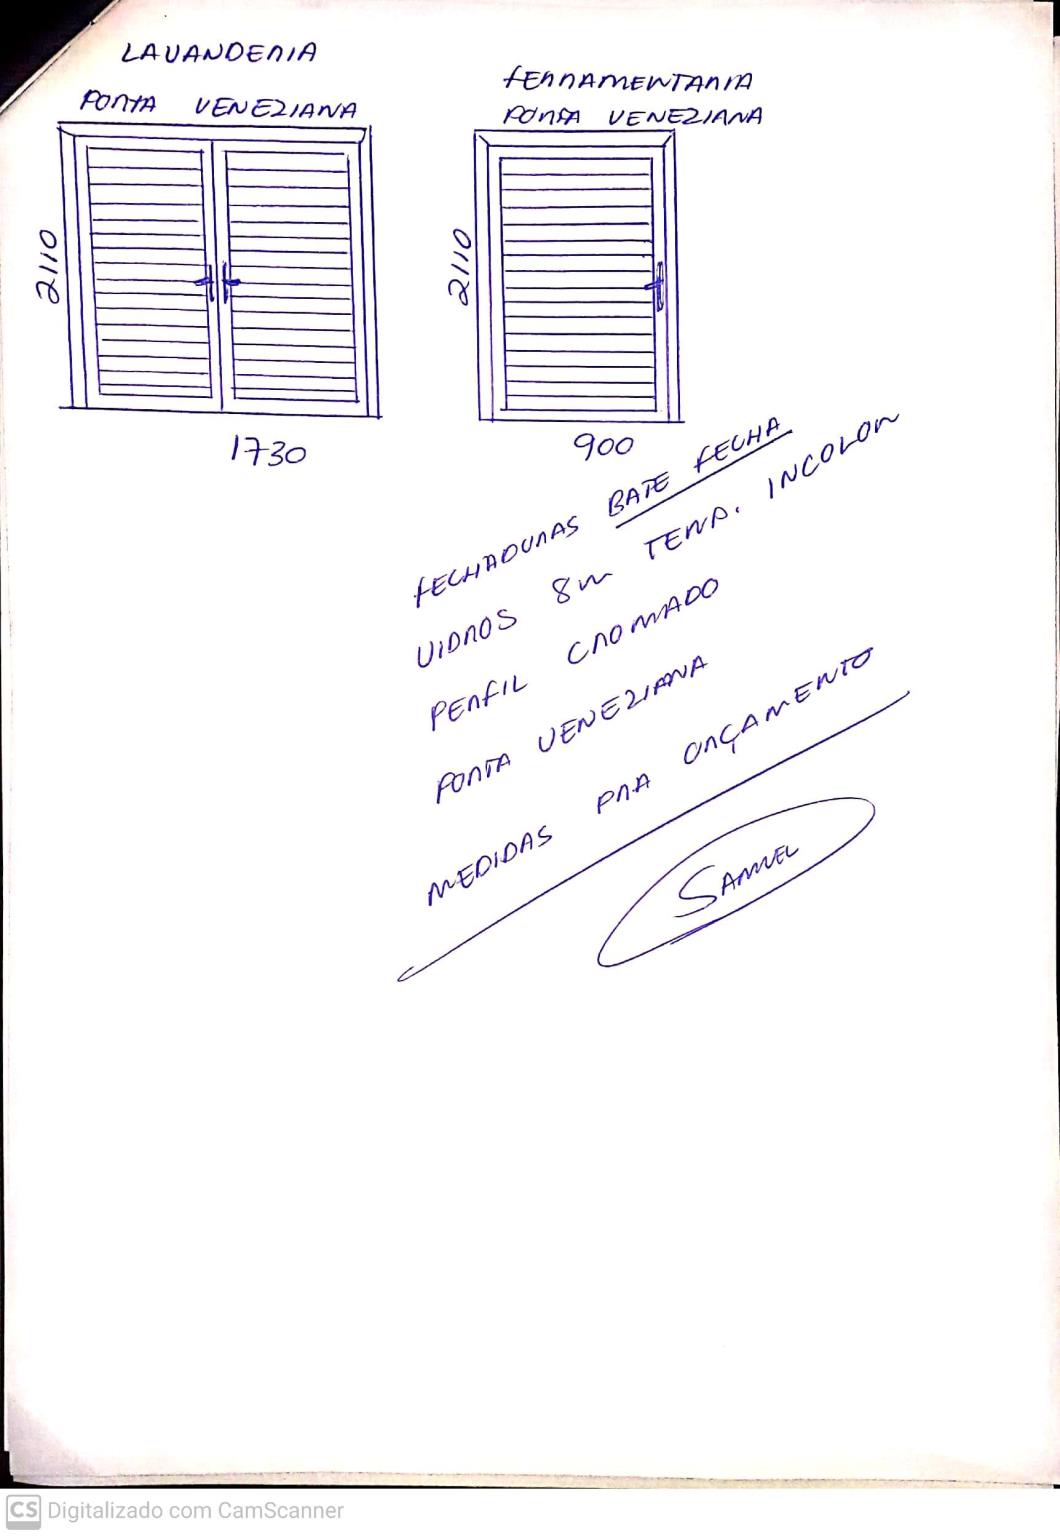 LAVANDERIA
PORTA VENEZIANA
2110
1730
FERRAMENTARIA
PORTA VENEZIANA
2110
900
FECHADURAS BATE FECHA
VIDROS 8m TEMP. INCOLOR
PERFIL CROMADO
PORTA VENEZIANA
MEDIDAS PRA ORÇAMENTO
SAMUEL
CS Digitalizado com CamScanner